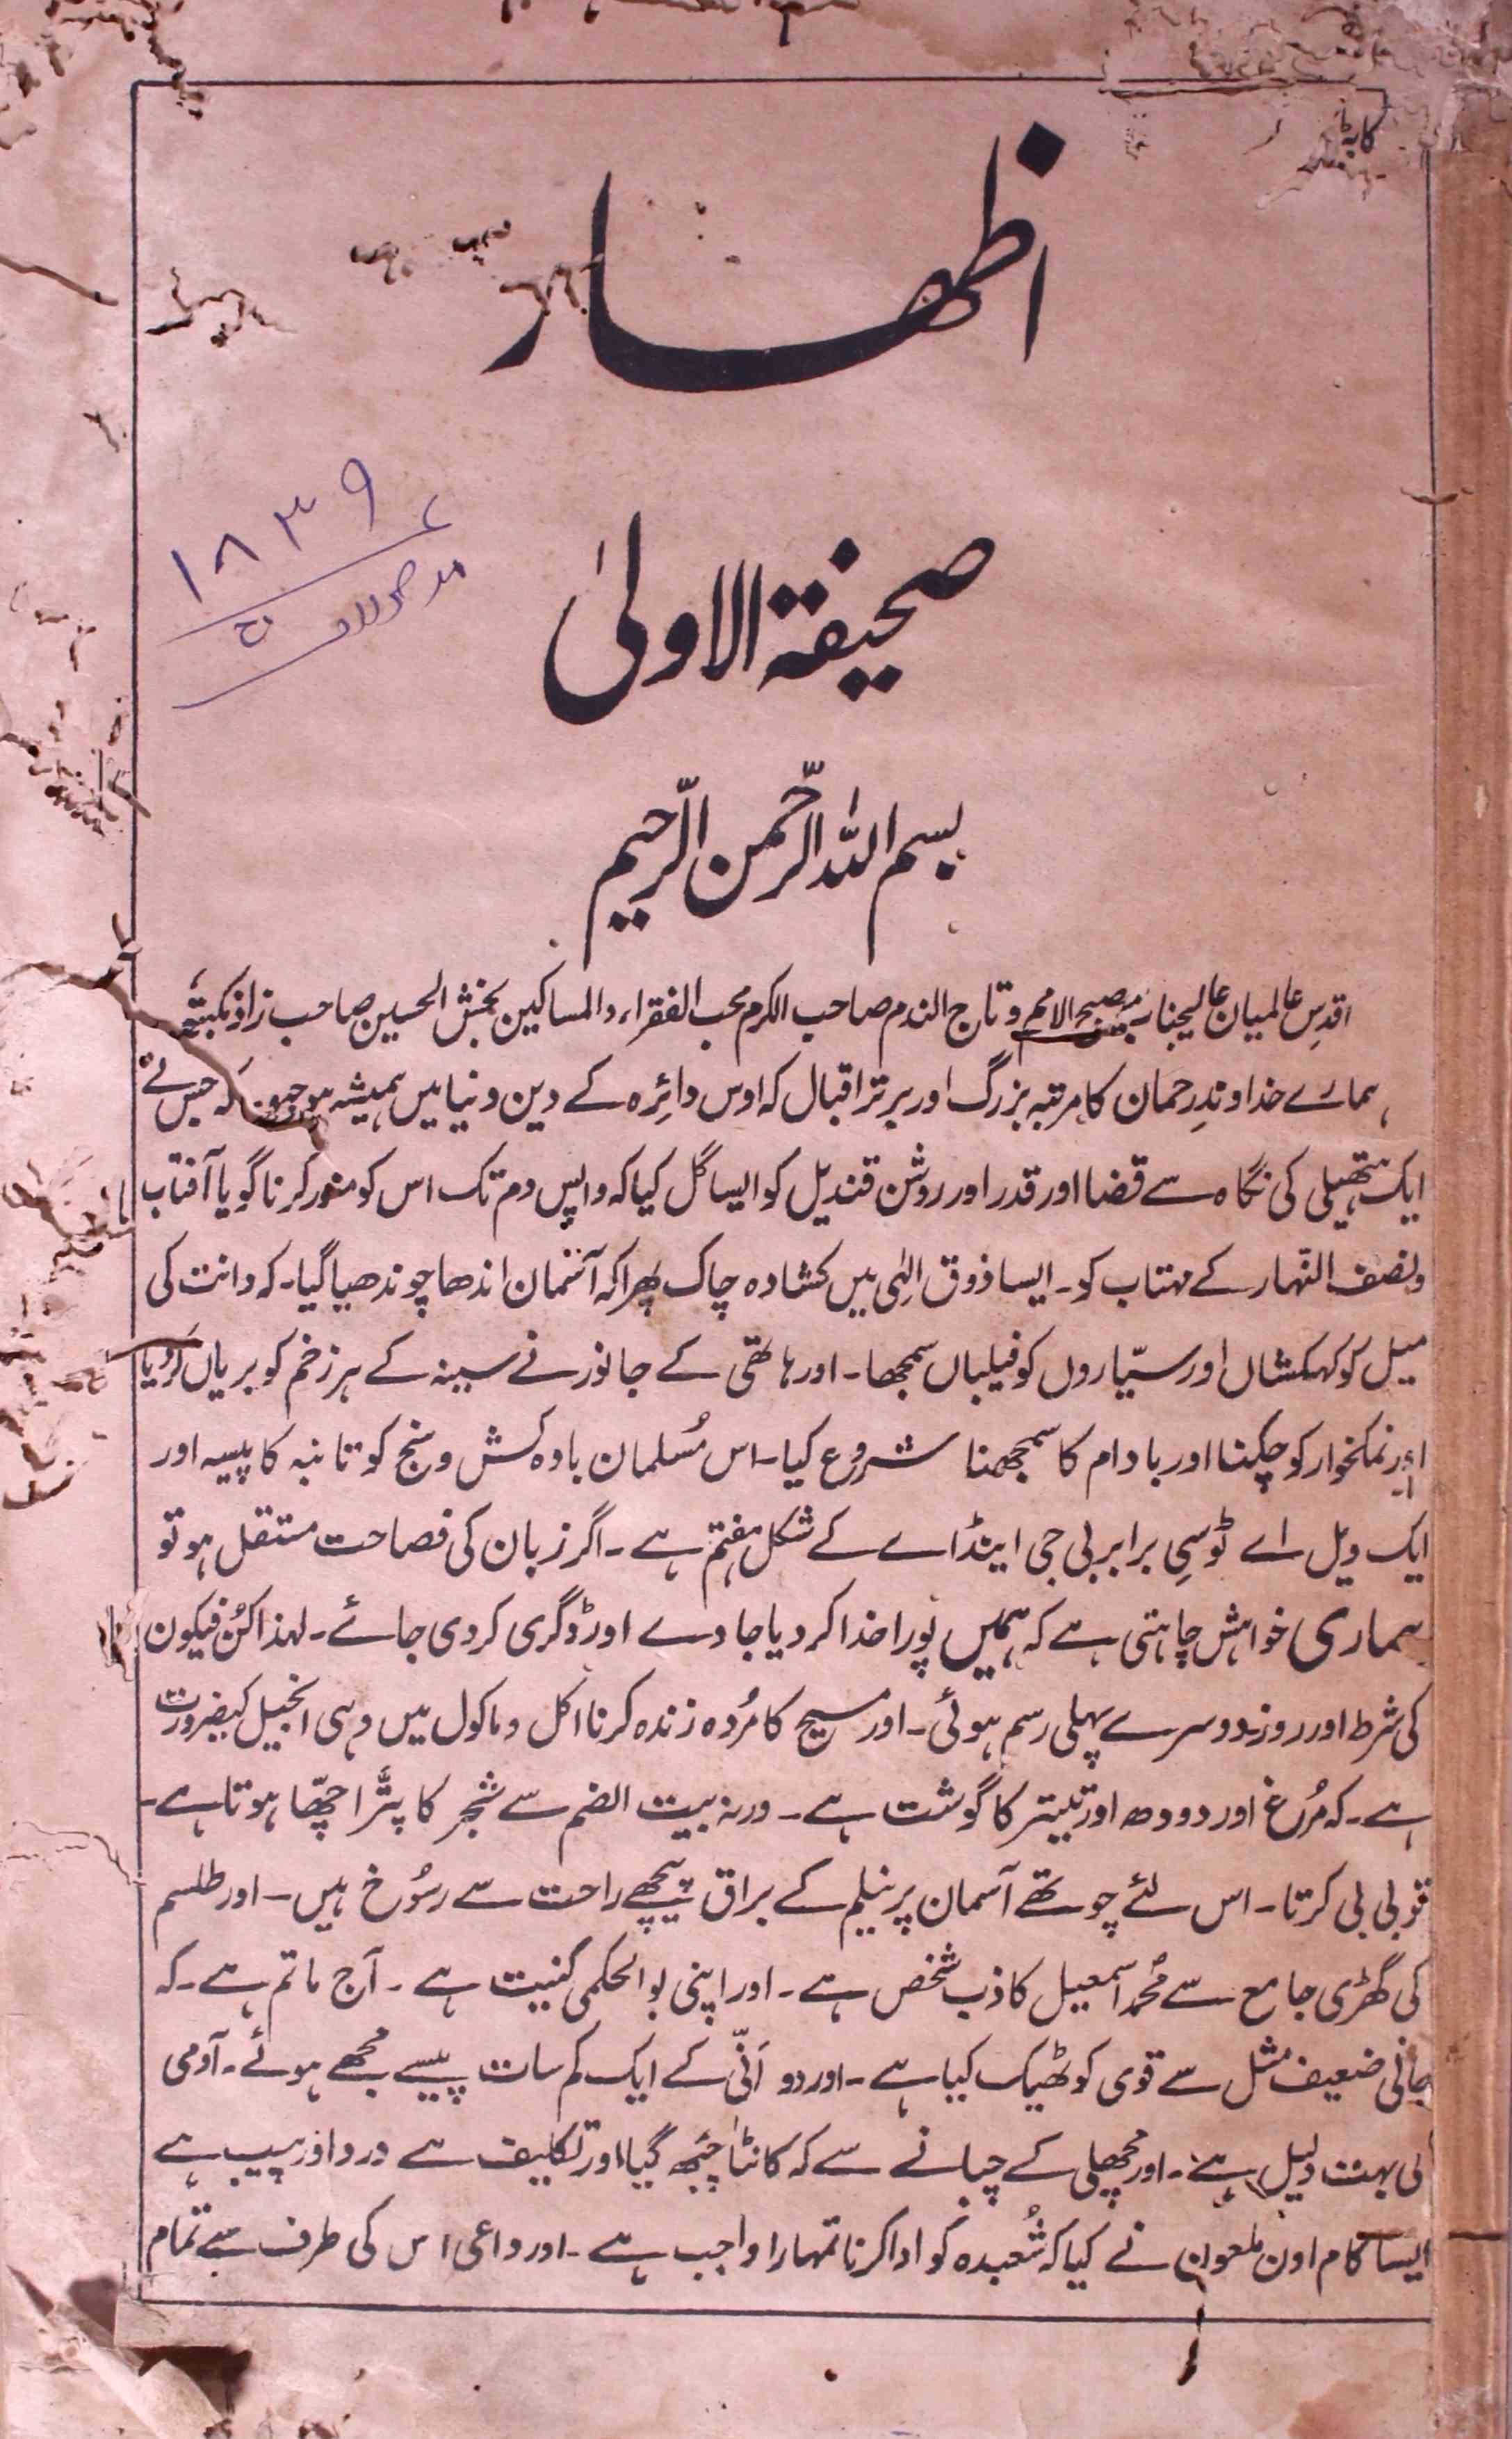 اظهار
۱۸۳۹
صحیفة الاولیٰ
بسم اللہ الرّحمن الرّحیم
اقدسِ عالمیان عالیجناب مصیح الامم و تاج الندم صاحب الکرم محب الفقراء والمساکین بخش الحسین صاحب زاد
ہمارے خداوندِ رحمان کا مرتبہ بزرگ اور برتر اقبال کہ اوس دائرہ کے دین دنیا میں ہمیشہ موجود کہ جس نے
ایک ہتھیلی کی نگاہ سے قضا اور قدر اور روشن قندیل کو ایسا گل کیا کہ واپس دم تک اس کو منور کرنا گویا آفتاب
ونصف النّہار کے مہتاب کو۔ ایسا ذوق الٰہی میں کشادہ چاک پھرا کہ آسمان اندھا چوندھیا گیا۔ کہ دانت کی
میل کو کہکشاں اور سیّاروں کو فیلباں سمجھا۔ اور ہاتھی کے جانور نے سینہ کے ہر زخم کو بریاں کر دیا
اور نمکخوار کو چکنا اور بادام کا سمجھنا شروع کیا۔ اس مُسلمان بادہ کش و سنج کو تانبہ کا پیسہ اور
ایک ویل اے ٹو سی برابر بی جی اینڈ اے کے شکل ہفتم ہے۔ اگر زبان کی فصاحت مستقل ہو تو
ہماری خواہش چاہتی ہے کہ ہمیں پورا خدا کر دیا جاوے اور ڈگری کر دی جائے۔ لہذا کُن فیکون
کی شرط اور روز دوسرے پہلی رسم ہوئی۔ اور مسیح کا مُردہ زندہ کرنا اکل و ماکول میں وہی انجیل کیضرورت
ہے۔ کہ مُرغ اور دودھ اور تیتر کا گوشت ہے۔ ورنہ بیت الضم سے شجر کا پتّا اچھّا ہوتا ہے۔
قو بی بی کرتا۔ اس لئے چوتھے آسمان پر نیلم کے براق پیچھے راحت سے رسُوخ ہیں۔ اور طلسم
کی گھڑی جامع سے مُحمد اسمعیل کاذب شخص ہے۔ اور اپنی بوالحکمی کنیت ہے۔ آج ماتم ہے۔ کہ
جانی ضعیف مثل سے قوی کو ٹھیک کیا ہے۔ اور دو اَنّی کے ایک کم سات پیسے مجھے ہوئے۔ آدمی
کی بہت دلیل ہے۔ اور مچھلی کے چبانے سے کہ کانٹا چبھ گیا اور تکلیف سے درد اور پیپ ہے
ایسا کام اون ملعون نے کیا کہ شُعبدہ کو ادا کرنا تمہارا واجب ہے۔ اور داعی اس کی طرف سے تمام